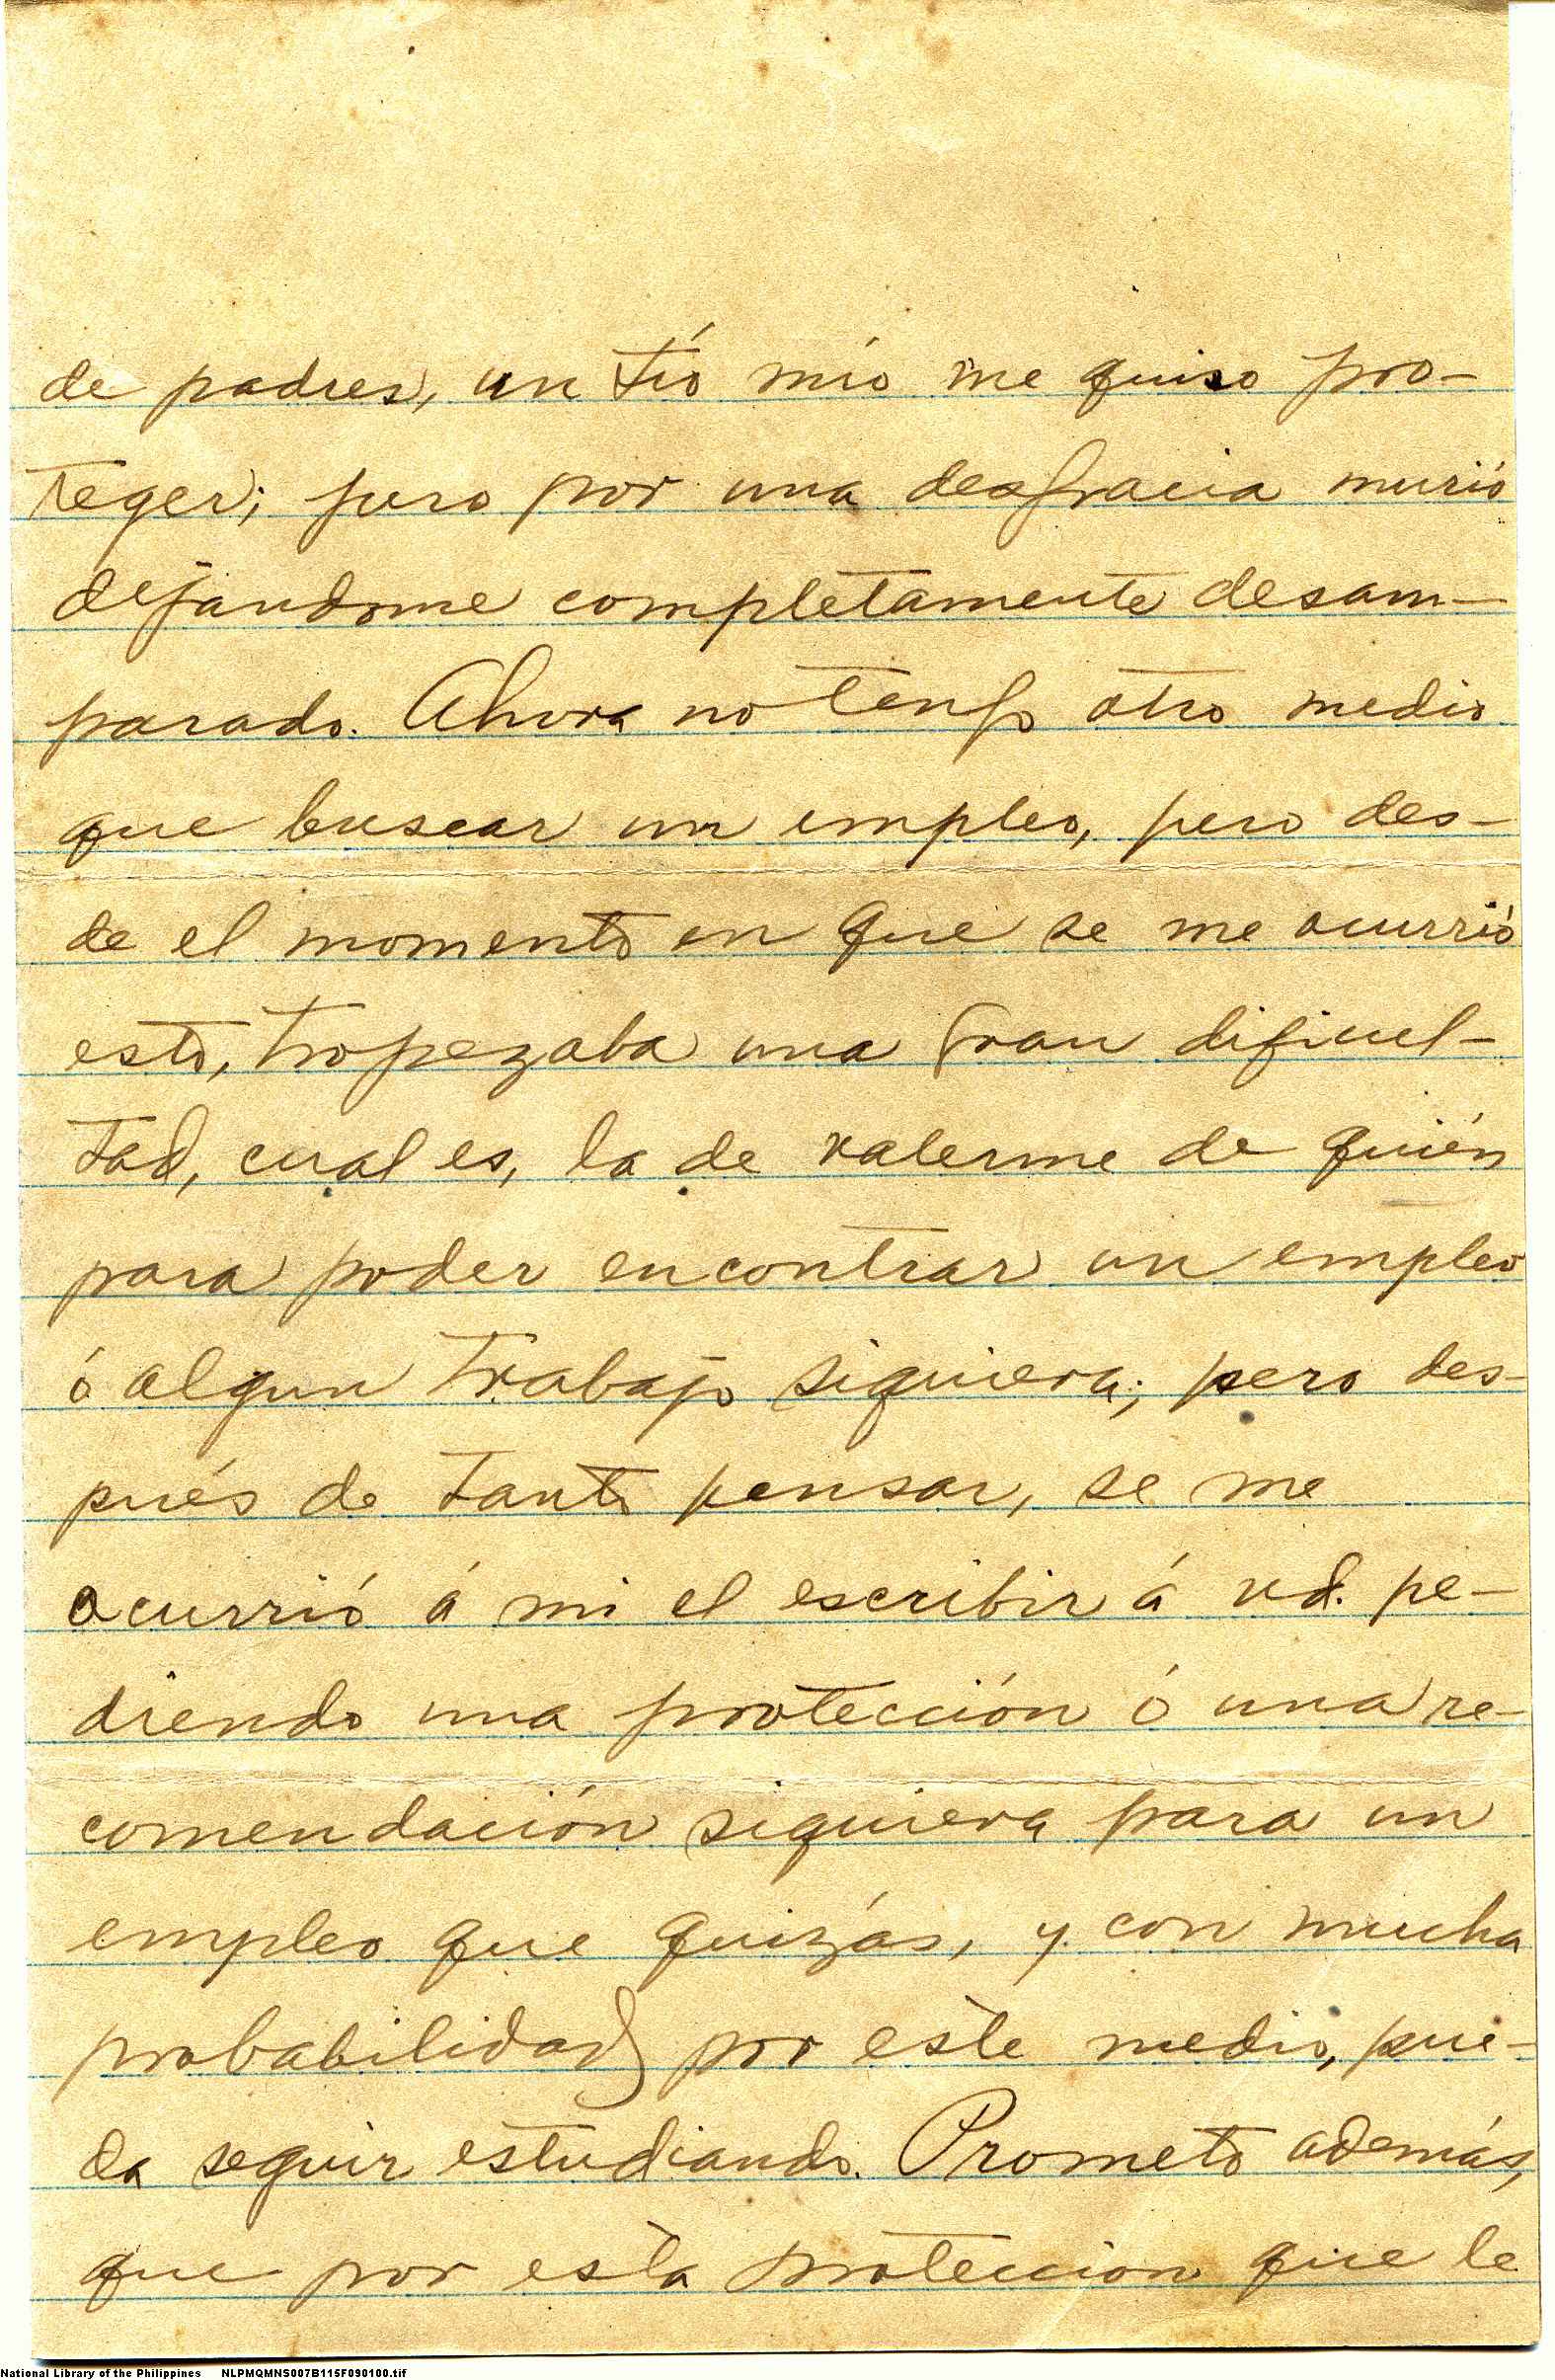 de padres, un tío mío me quiso pro-
teger; pero por una desgracia murió
dejandome completamente desam-
parado. Ahora no tengo otro medio
que buscar un empleo, pero des-
de el momento en que se me ocurrió
esto, tropezaba una gran dificul-
tad, cual es, la de valerme de quién
para poder encontrar un empleo
ó algun trabajo siquiera; pero des-
pués de tanto pensar, se me
ocurrió á mi el escribir á vd. pe-
diendo una protección ó una re-
comendación siquiera para un
empleo que quizás, y con mucha
probabilidad por este medio, pue-
da seguir estudiando. Prometo además,
que por esta proteccion que le
National Library of the Philippines NLPMQMNS007B115F090100.tif